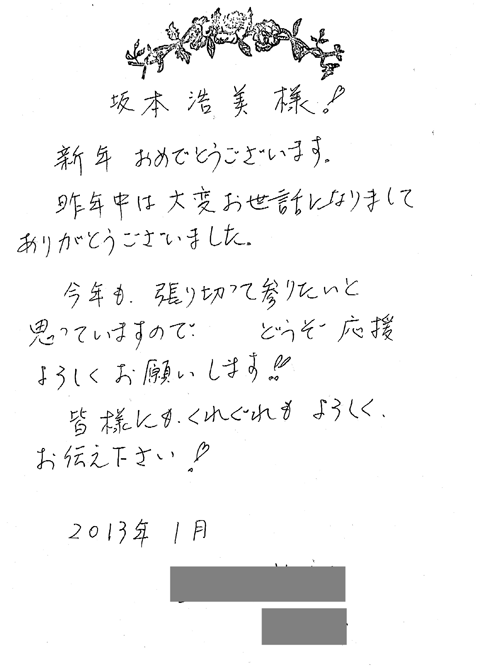 坂本浩美様!
新年おめでとうございます。
昨年中は大変お世話になりまして
ありがとうございました。
今年も、張り切って参りたいと
思っていますので どうぞ応援
よろしくお願いします!!
皆様にも、くれぐれもよろしく、
お伝え下さい!
2013年1月